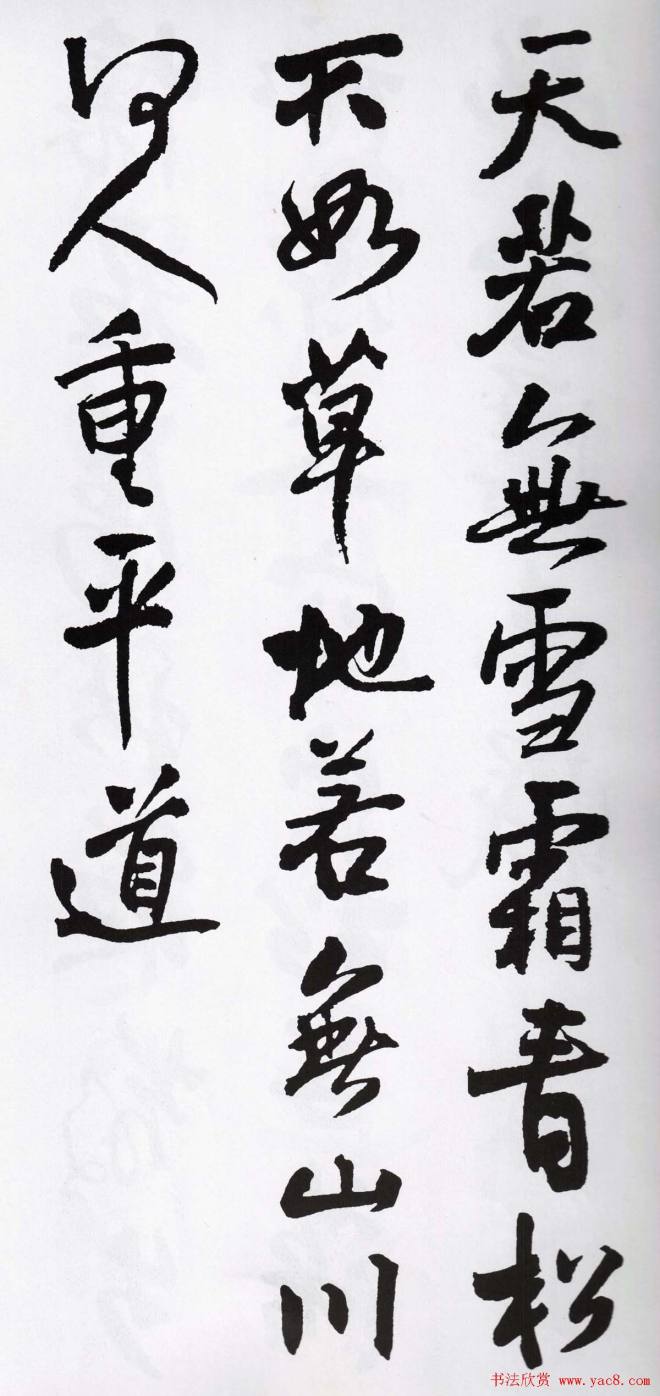 天若無雪霜青松
不如草地若無山川
何人重平道
书法欣赏 www.yac8.com